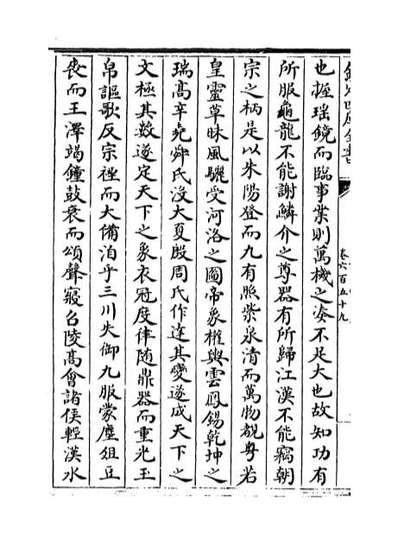 欽定四庫全書
卷六百五十九
也握瑶鏡而臨事業則萬機之姿不足大也故知功有
所服龜龍不能謝鱗介之尊器有所歸江漢不能竊朝
宗之柄是以朱陽登而九有照紫泉清而萬物覩粤若
皇靈草昧風驪受河洛之圖帝象權輿雲鳳錫乾坤之
瑞髙辛堯舜氏没大夏殷周氏作達其變遂成天下之
文極其数遂定天下之象衣冠度律随鼎器而重光玉
帛謳歌反宗禋而大備洎乎三川失御九服蒙塵俎豆
喪而王澤竭鍾鼓衰而頌聲寢召陵髙會諸侯輕漢水